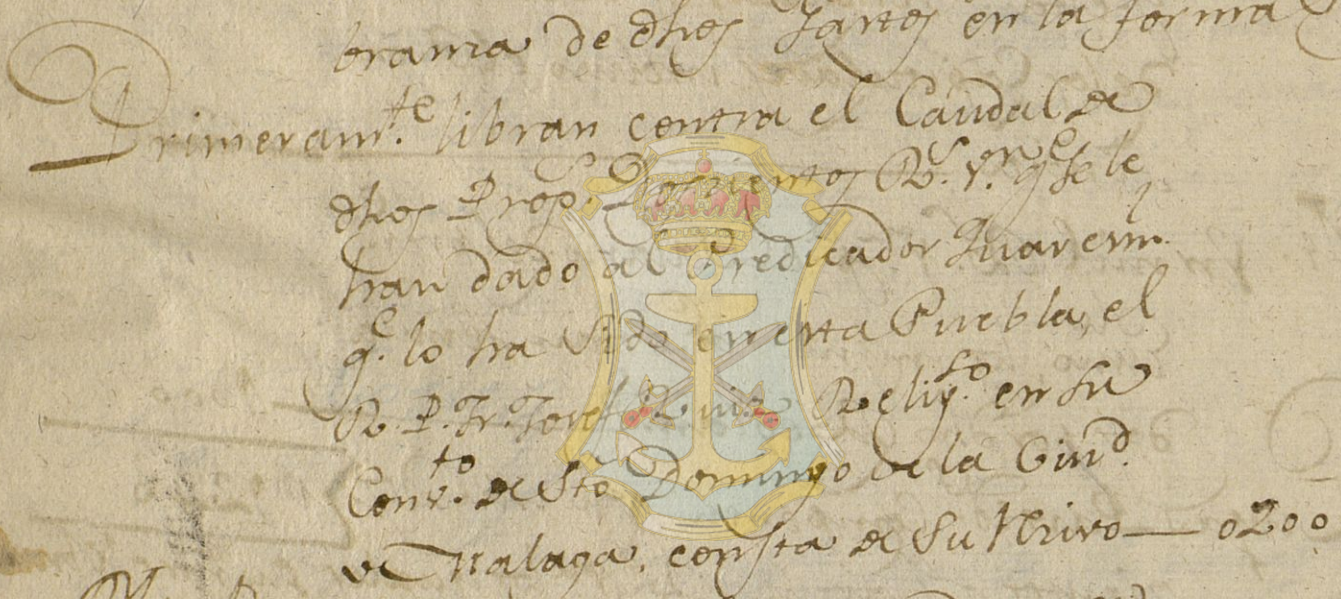 branza de dhos Gastos en la forma
Primeramte. libran contra el Caudal de
dhos Prop. Docientos Rs. vn. qe. se le
han dado al Predicador Quaresm.
qe. lo ha sido en esta Puebla, el
R. P. Fr. Josef Ruiz Religso. en su
Convto. de Sto Domingo de la Ciud.
de Malaga, consta de su Recivo — 0200